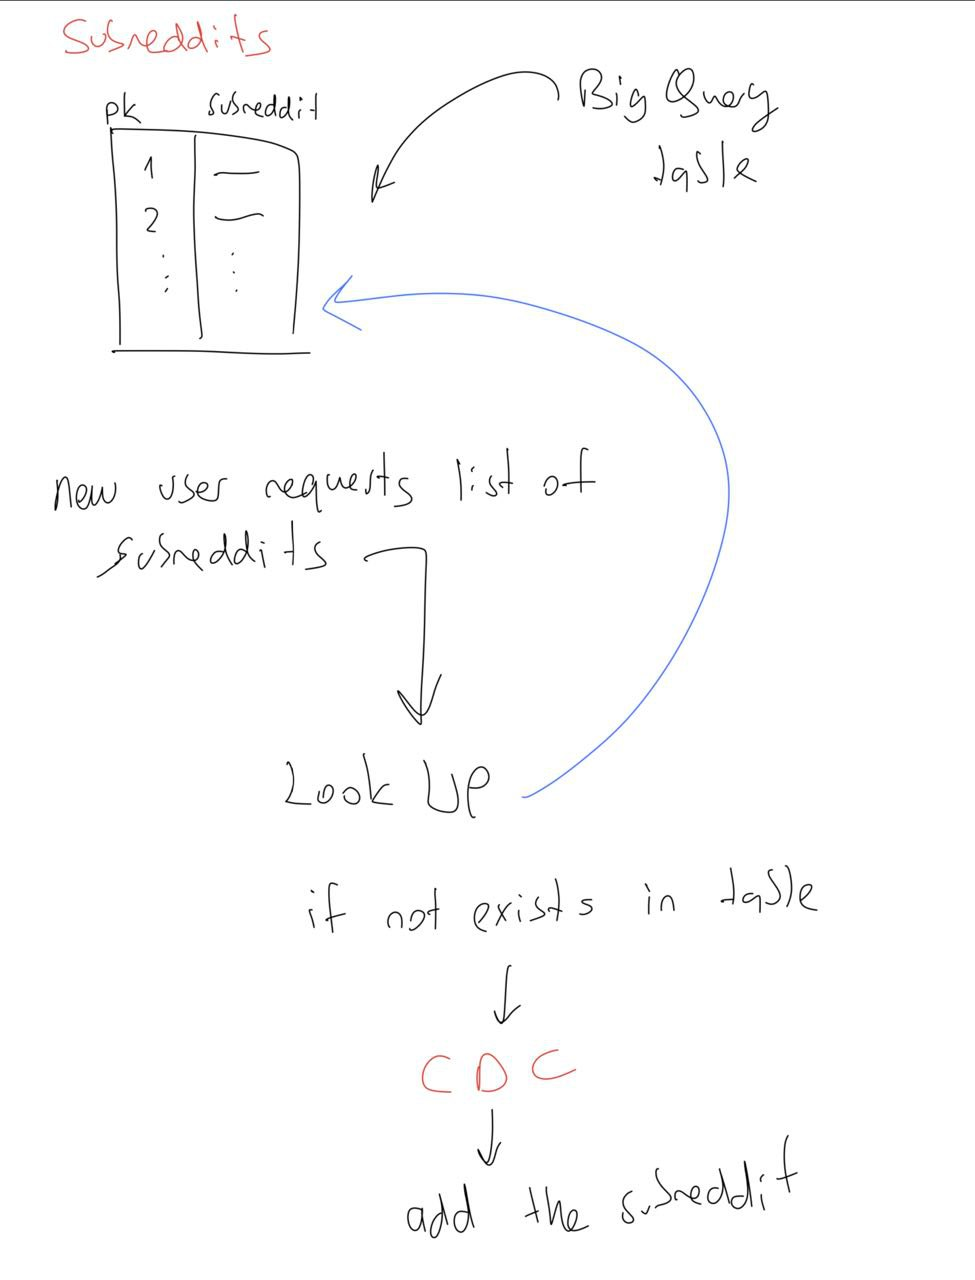 Subreddits
pk subreddit
1
2
Big Query
table
new user requests list of
subreddits
Look Up
if not exists in table
CDC
add the subreddit